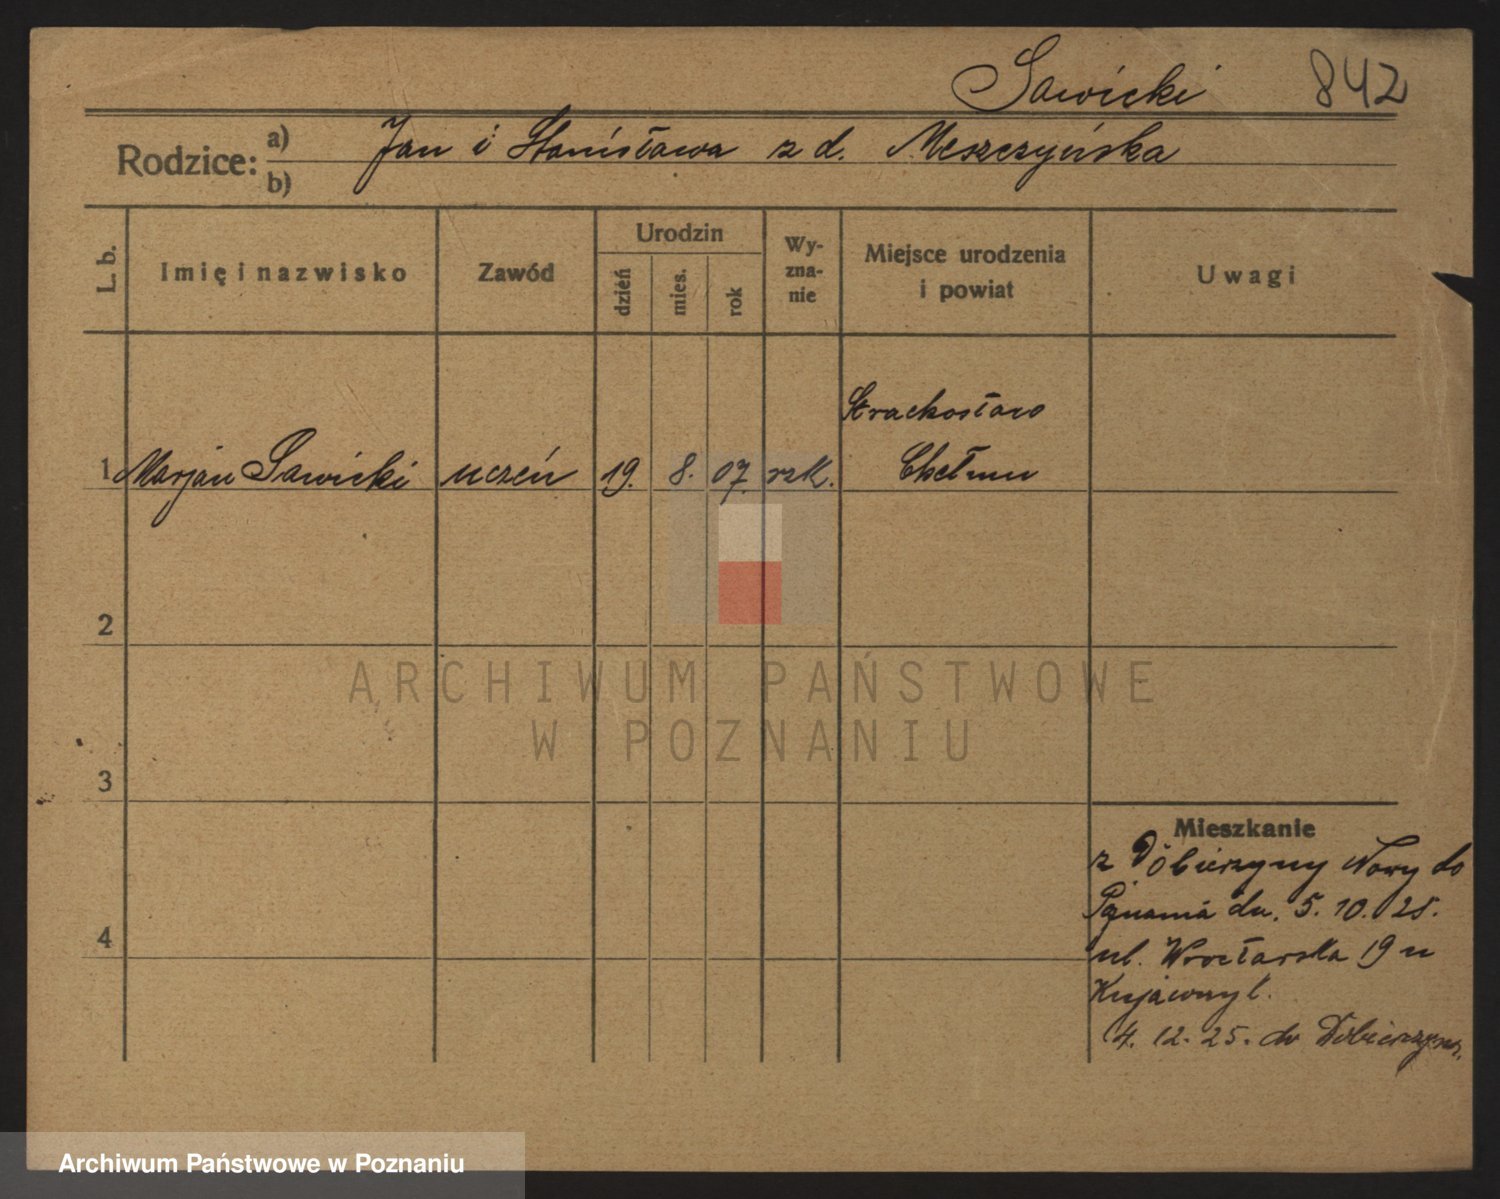 Sawicki 842
Rodzice: a) Jan i Stanisława z d. Meszczyńska
b)
L. b.
Imię i nazwisko
Zawód
Urodzin
dzień
mies.
rok
Wy-
zna-
nie
Miejsce urodzenia
i powiat
Uwagi
Strachosław
1 Marjan Sawicki uczeń 19. 8. 07. rzk. Chełmu
2
ARCHIWUM PAŃSTWOWE
W POZNANIU
3
Mieszkanie
z Dobieszyny Nowy do
Poznania dn. 5. 10. 25.
4
ul. Wrocławska 19 u
4. 12. 25. do
Archiwum Państwowe w Poznaniu